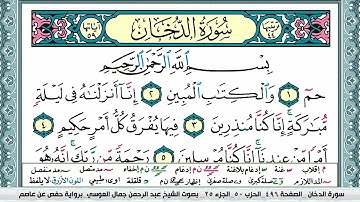 ترتيبها ٤٤ سُورَةُ الدُّخَانِ آياتها ٥٩
بِسْمِ اللَّهِ الرَّحْمَٰنِ الرَّحِيمِ
حمٓ ١ وَالْكِتَابِ الْمُبِينِ ٢ إِنَّا أَنزَلْنَاهُ فِي لَيْلَةٍ
مُّبَارَكَةٍ إِنَّا كُنَّا مُنذِرِينَ ٣ فِيهَا يُفْرَقُ كُلُّ أَمْرٍ حَكِيمٍ ٤
أَمْرًا مِّنْ عِندِنَا إِنَّا كُنَّا مُرْسِلِينَ ٥ رَحْمَةً مِّن رَّبِّكَ إِنَّهُ هُوَ
إقلاب
سورة الدخان - الصفحة ٤٩٦ - الحزب ٥٠ - الجزء ٢٥ - بصوت الشيخ عبد الرحمن جمال العوسي - برواية حفص عن عاصم